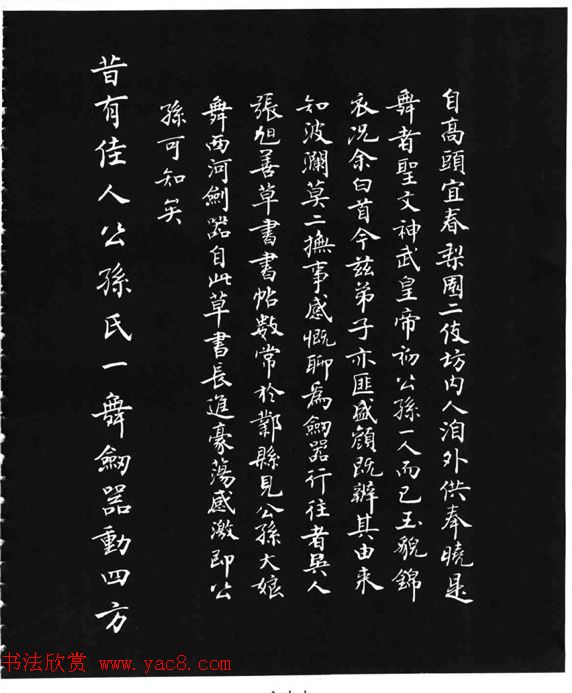 自高頭宜春梨園二伎坊內人洎外供奉曉是
舞者聖文神武皇帝初公孫一人而已玉貌錦
衣況余白首今茲弟子亦匪盛顏既辨其由來
知波瀾莫二撫事感慨聊為劒器行往者吳人
張旭善草書書帖數常於鄴縣見公孫大娘
舞西河劍器自此草書長進豪蕩感激即公
孫可知矣
昔有佳人公孫氏一舞劒器動四方
书法欣赏 www.yac8.com